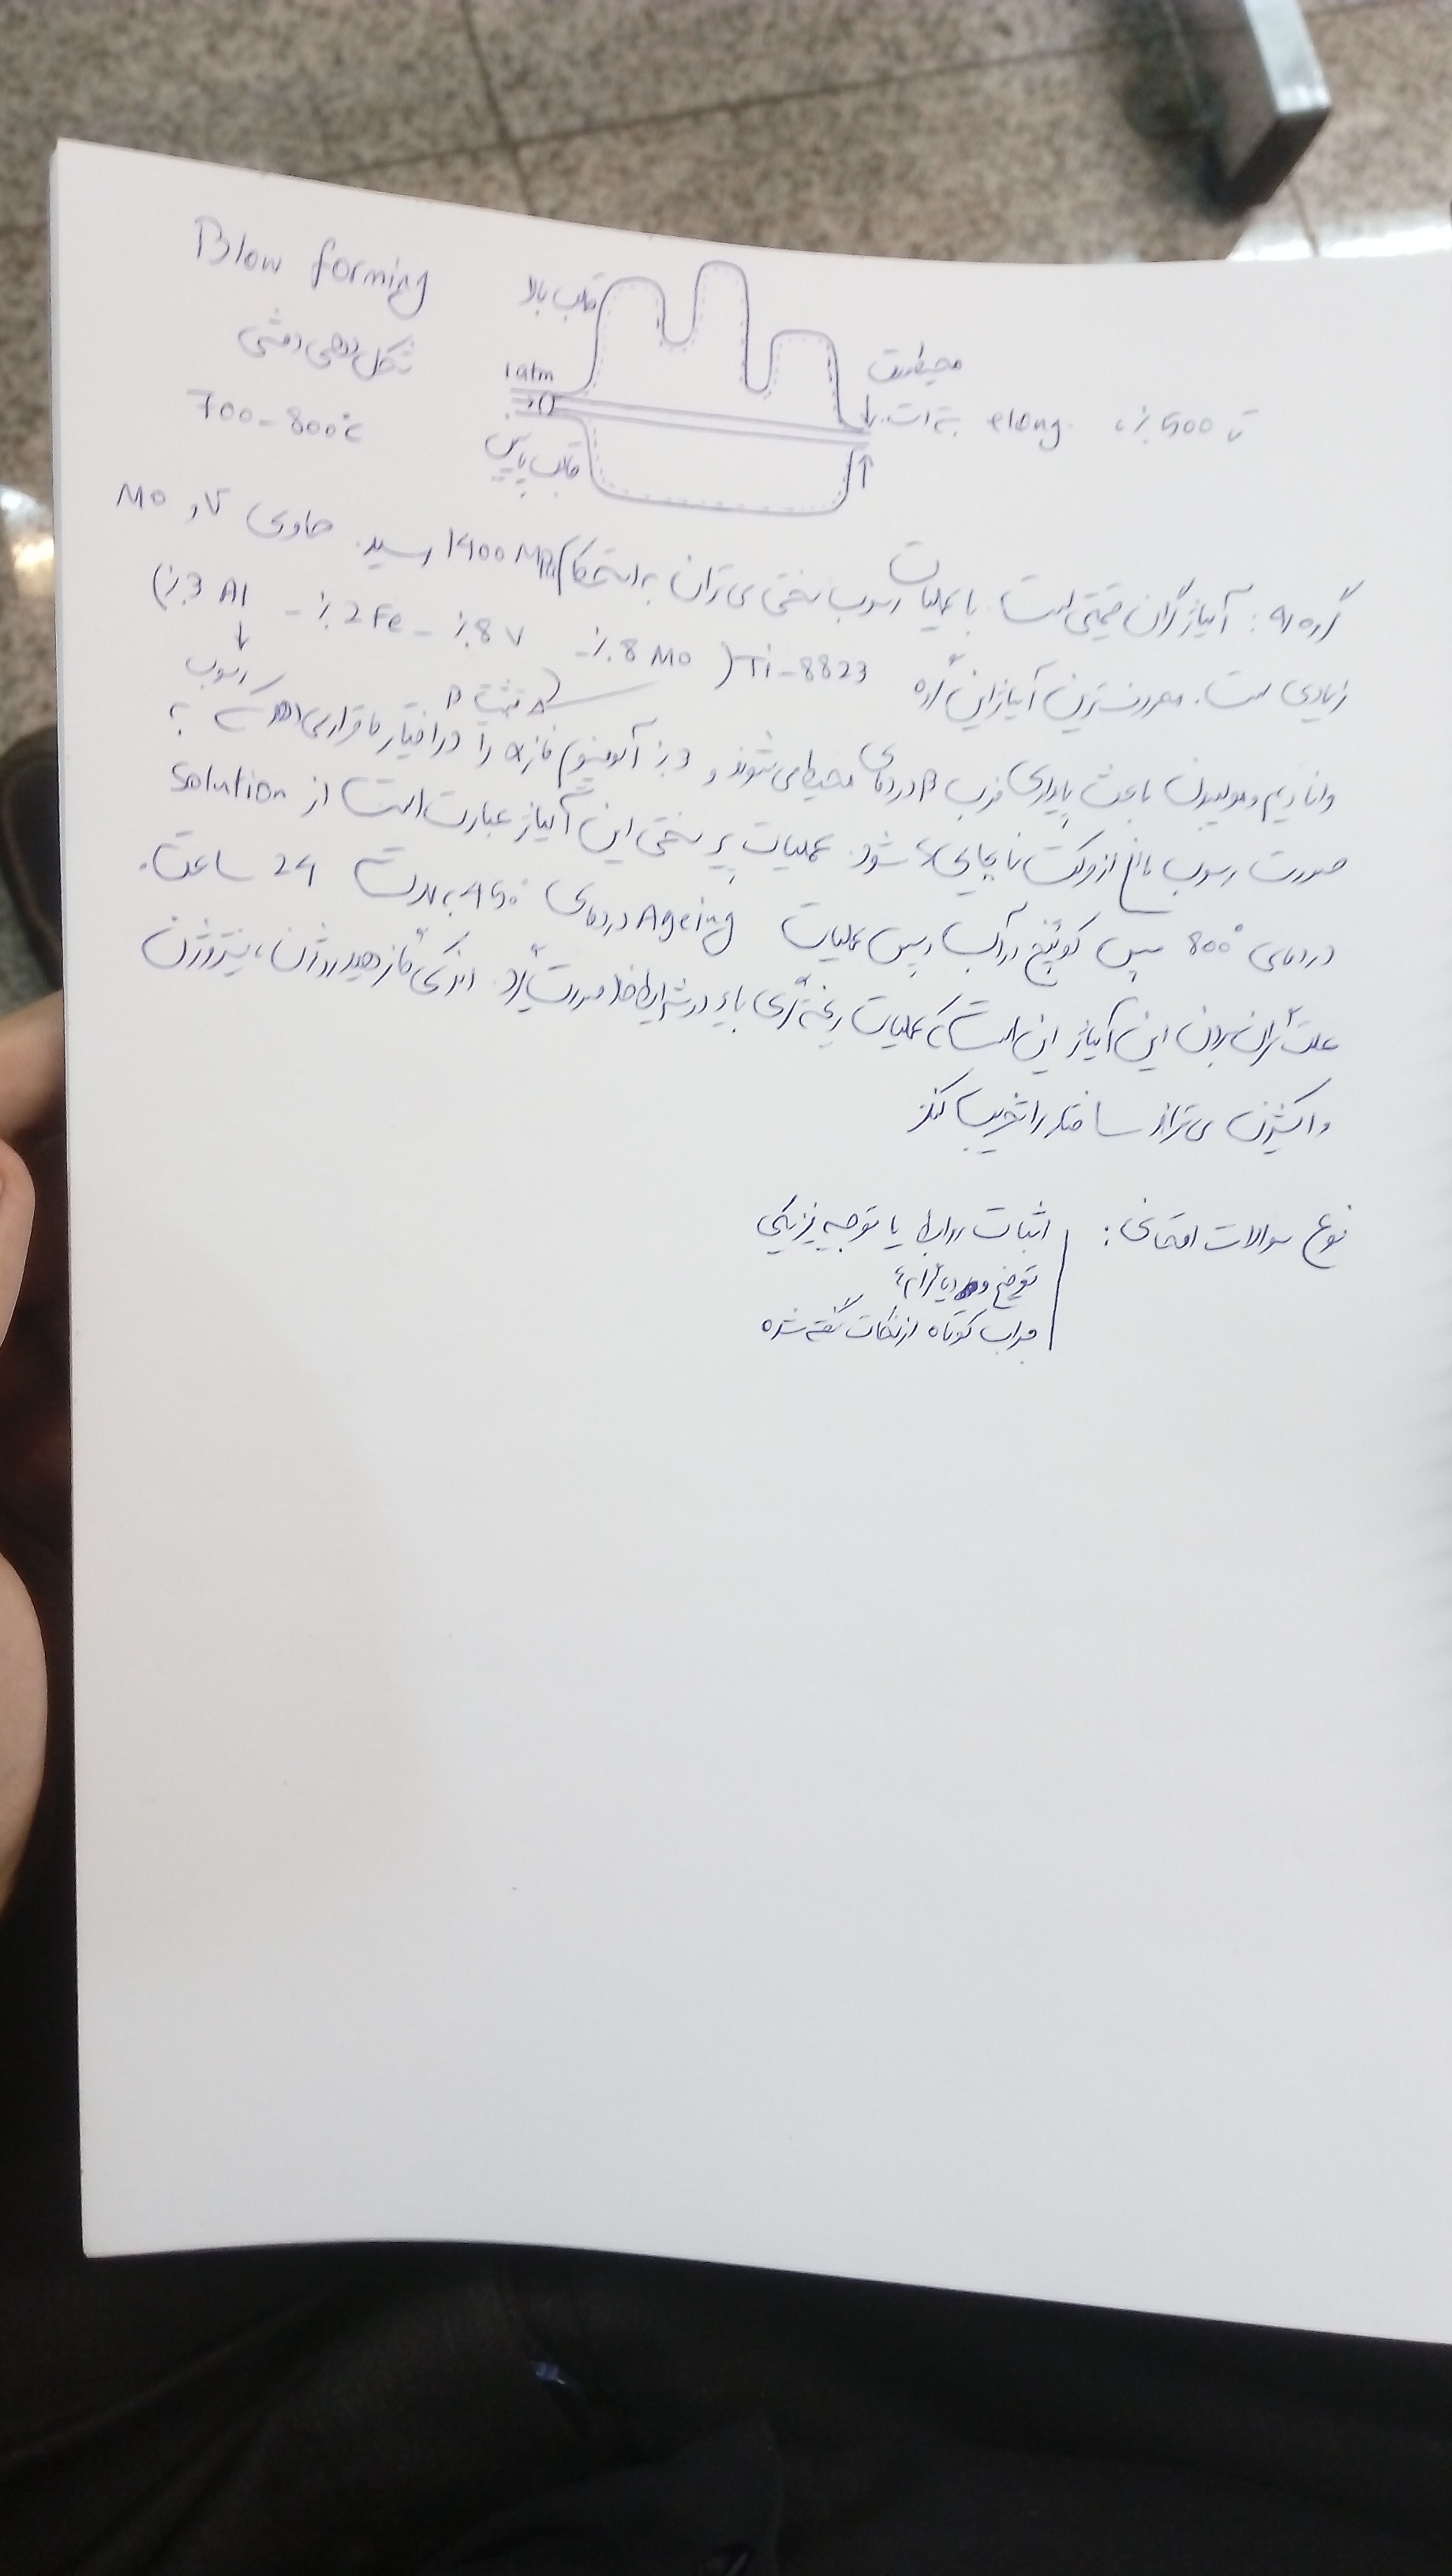 Blow forming
شکل دهی دمشی
700-800°c
قالب بالا
1 atm
قالب پایین
محیط
تا 500٪ elong. بسته است
گروه 4: آلیاژ گران قیمتی است. با عملیات رسوب سختی می توان به استحکام 1400 MPa رسید. حاوی V و Mo
زیادی است. معروف ترین آلیاژ این گروه Ti-8823 (٪8 Mo - ٪8 V - ٪2 Fe - ٪3 Al)
تثبیت β
رسوب
وانادیم و مولیبدن باعث پایداری فاز β در دمای محیط می شوند و 3٪ آلومینیوم فاز α را در اختیار ما قرار می دهد که به
صورت رسوب مانع از حرکت نابجایی ها شود. عملیات پیر سختی این آلیاژ عبارت است از Solution
در دمای 800° سپس کوئنچ در آب و سپس عملیات Ageing در دمای 450° به مدت 24 ساعت.
علت گران بودن این آلیاژ این است که عملیات ریخته گری باید در شرایط خلا صورت گیرد. اندکی گاز هیدروژن، نیتروژن
و اکسیژن می تواند ساختار را تخریب کند
نوع سوالات امتحانی: اثبات روابط یا توجیه فیزیکی
توضیح دیاگرام
جواب کوتاه از نکات گفته شده